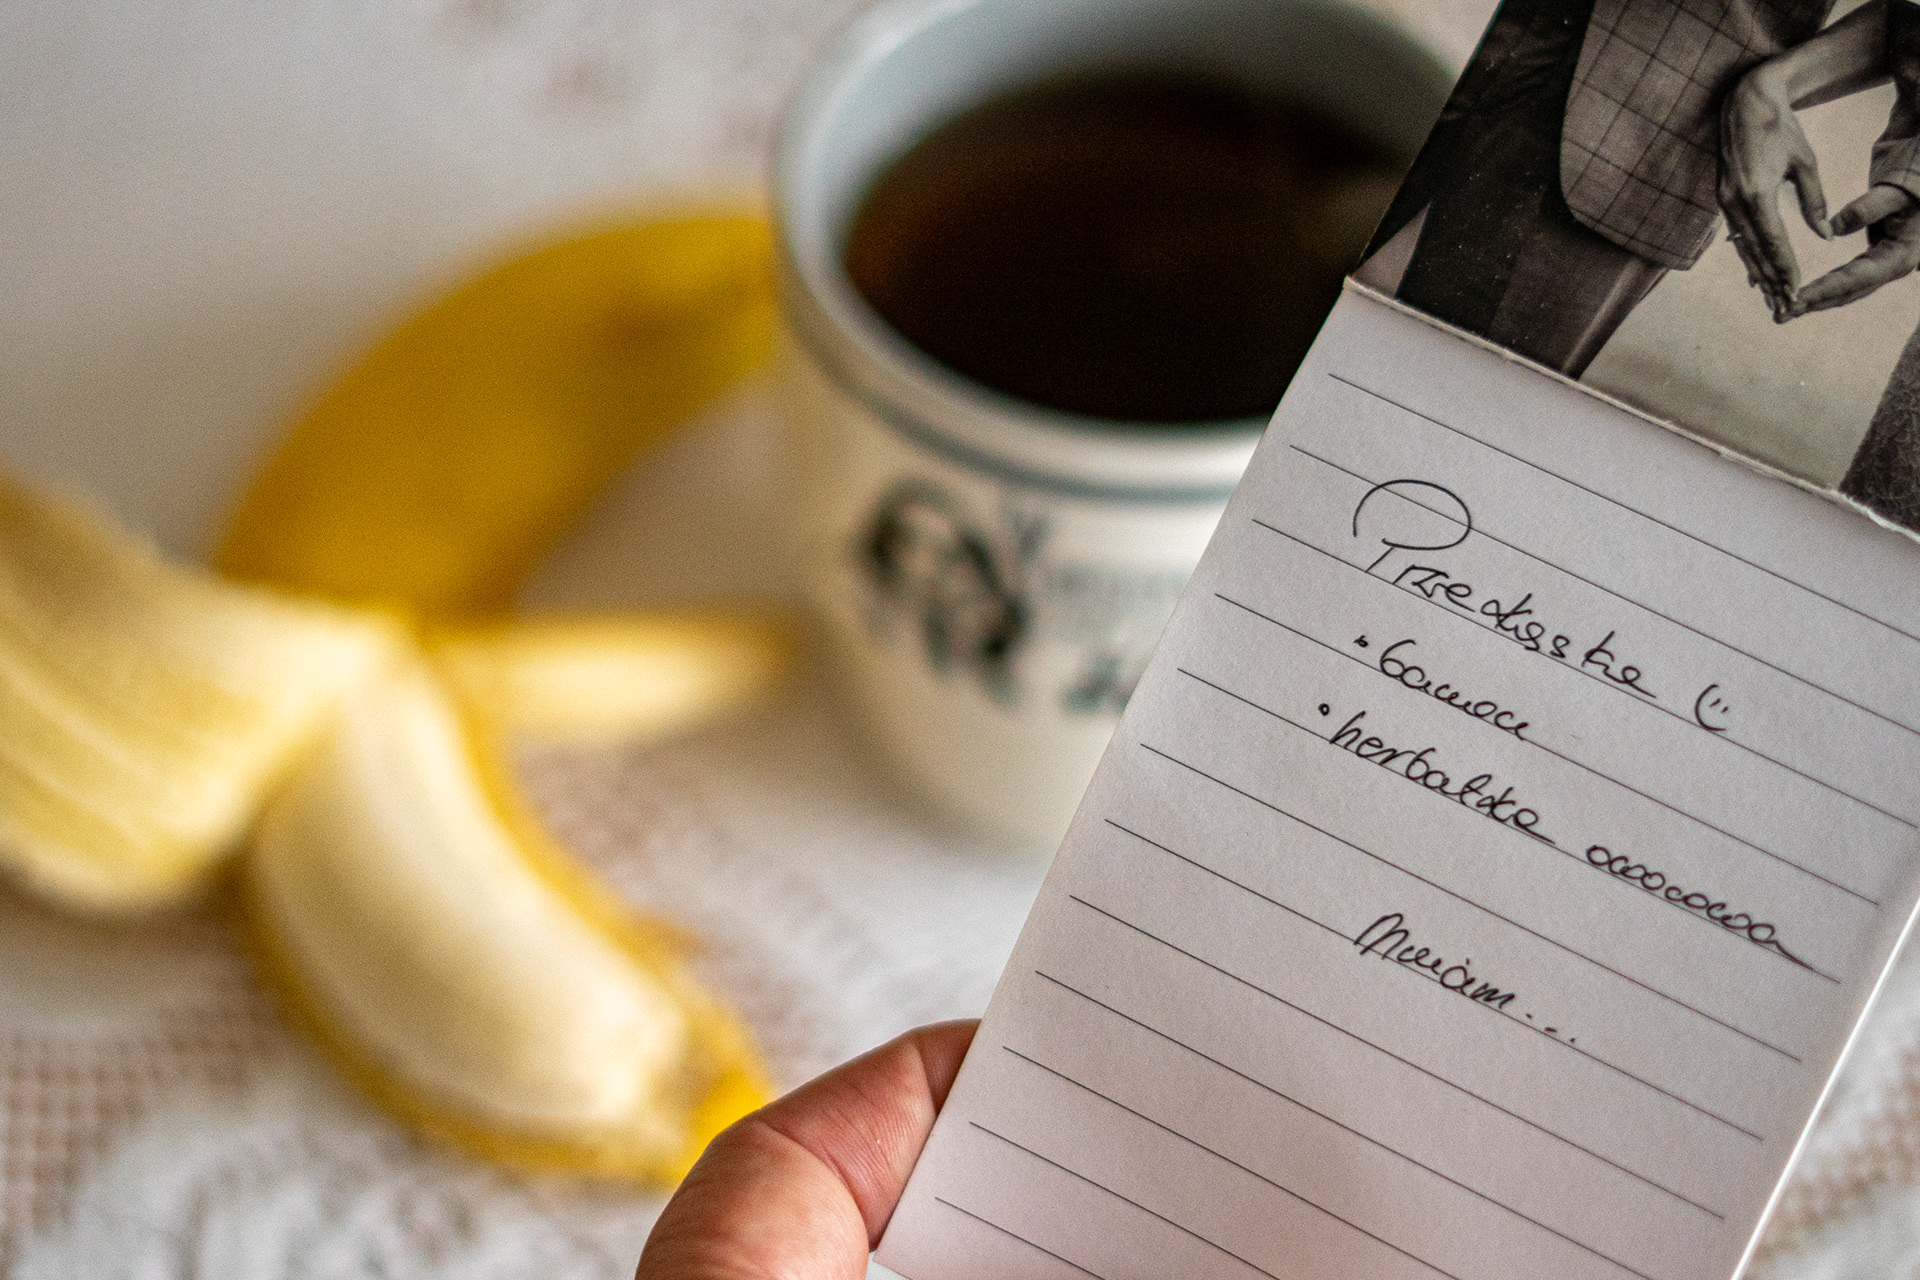 Przekąska :)
• banan
• herbatka
Mniam...